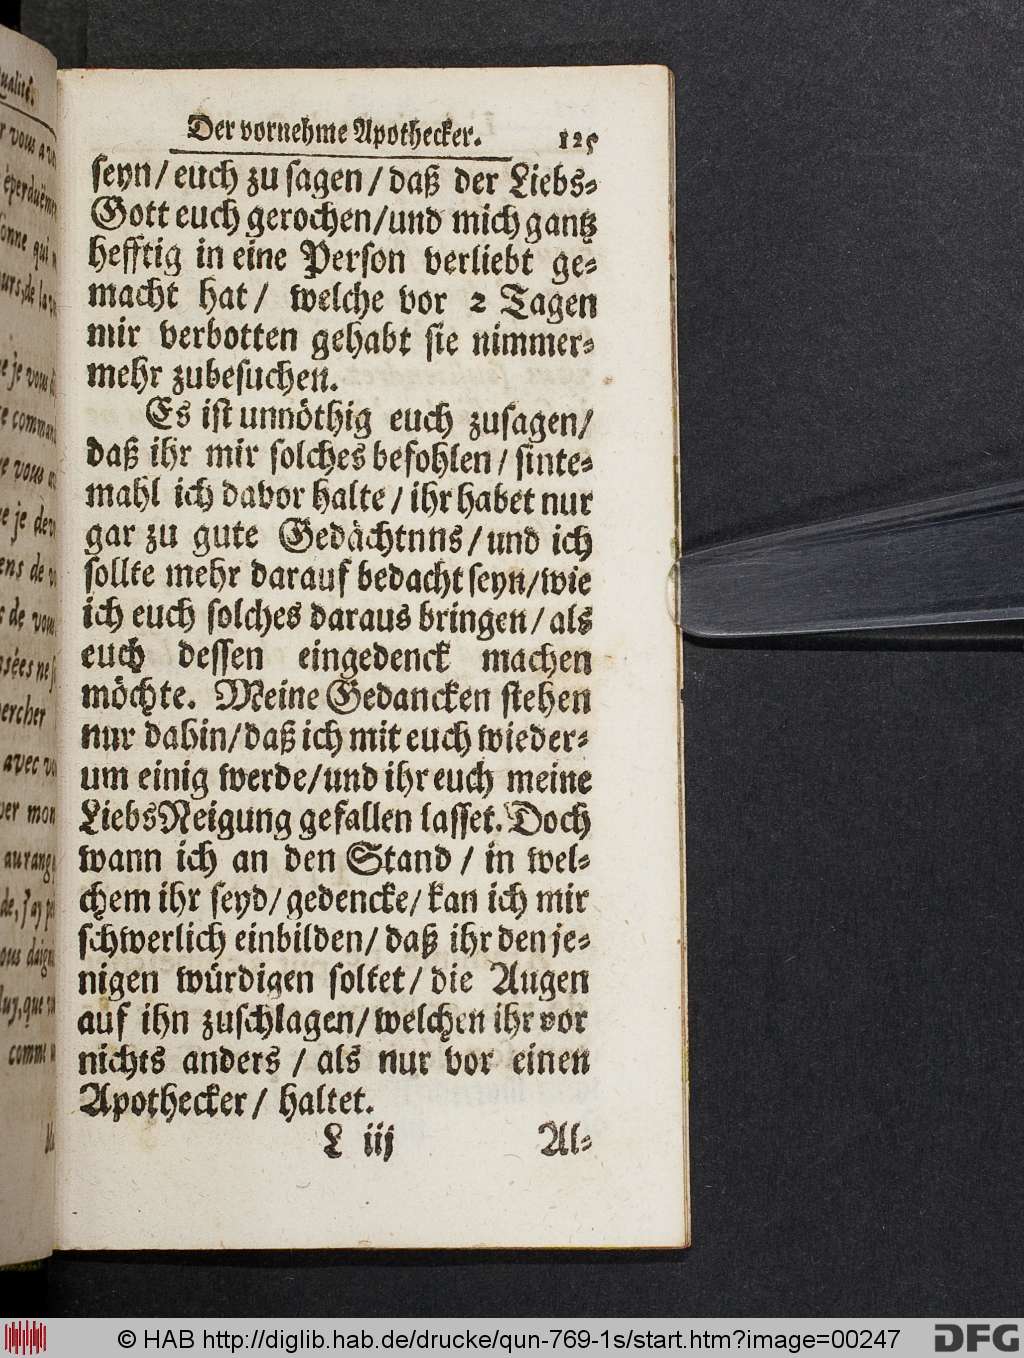 Der vornehme Apothecker. 125
seyn / euch zu sagen / daß der Liebs-
Gott euch gerochen / und mich gantz
hefftig in eine Person verliebt ge-
macht hat / welche vor 2 Tagen
mir verbotten gehabt sie nimmer-
mehr zubesuchen.
Es ist unnöthig euch zusagen /
daß ihr mir solches befohlen / sinte-
mahl ich davor halte / ihr habet nur
gar zu gute Gedächtnns / und ich
sollte mehr darauf bedacht seyn / wie
ich euch solches daraus bringen / als
euch dessen eingedenck machen
möchte. Meine Gedancken stehen
nur dahin / daß ich mit euch wieder-
um einig werde / und ihr euch meine
LiebsNeigung gefallen lasset. Doch
wann ich an den Stand / in wel-
chem ihr seyd / gedencke / kan ich mir
schwerlich einbilden / daß ihr denje-
nigen würdigen soltet / die Augen
auf ihn zuschlagen / welchen ihr vor
nichts anders / als nur vor einen
Apothecker / haltet.
L iij Al-
© HAB http://diglib.hab.de/drucke/qun-769-1s/start.htm?image=00247 DFG